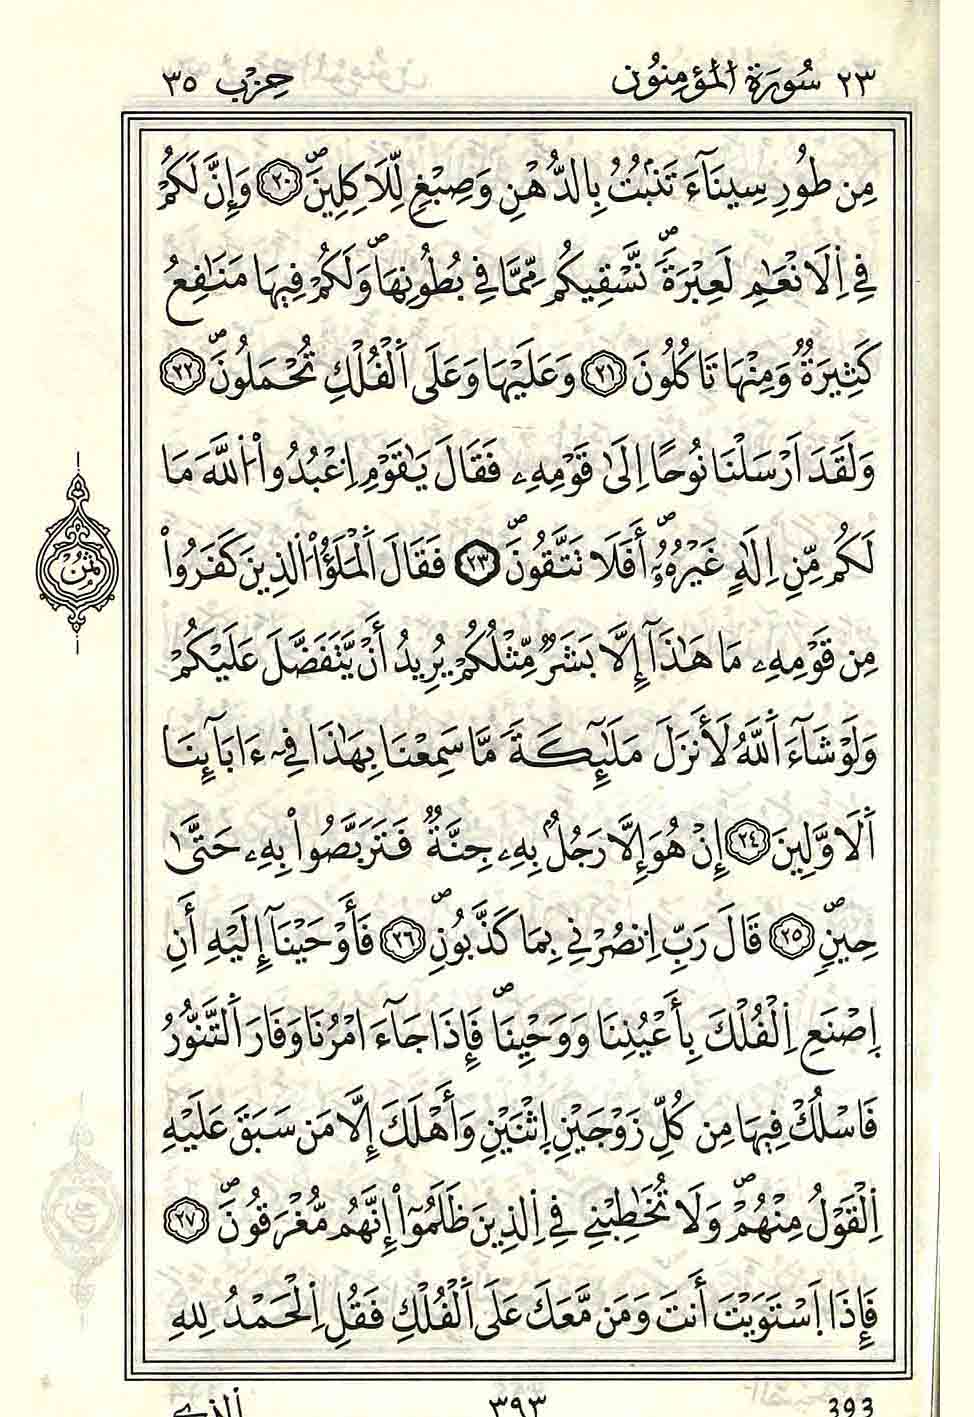 ٢٣ سُورَةُ الْمُؤْمِنُونَ حِزْب ٣٥
مِن طُورِ سِينَآءَ تَنۢبُتُ بِالدُّهْنِ وَصِبْغٍ لِّلَاكِلِينَۖ ٢٠ وَإِنَّ لَكُمْ
فِي اِلَانْعَٰمِ لَعِبْرَةٗۖ نَّسْقِيكُم مِّمَّا فِي بُطُونِهَاۖ وَلَكُمْ فِيهَا مَنَٰفِعُ
كَثِيرَةٞ وَمِنْهَا تَاكُلُونَ ٢١ وَعَلَيْهَا وَعَلَى اَلْفُلْكِ تُحْمَلُونَۖ ٢٢
وَلَقَدَ اَرْسَلْنَا نُوحاً اِلَىٰ قَوْمِهِۦ فَقَالَ يَٰقَوْمِ اِعْبُدُواْ اُللَّهَ مَا
لَكُم مِّنِ اِلَٰهٍ غَيْرُهُۥٓۖ أَفَلَا تَتَّقُونَۖ ٢٣ فَقَالَ اَلْمَلَؤُاْ اُلذِينَ كَفَرُواْ
مِن قَوْمِهِۦ مَا هَٰذَآ إِلَّا بَشَرٞ مِّثْلُكُمْ يُرِيدُ أَنْ يَّتَفَضَّلَ عَلَيْكُمْ
وَلَوْ شَآءَ اَللَّهُ لَأَنزَلَ مَلَٰٓئِكَةٗ مَّا سَمِعْنَا بِهَٰذَا فِيٓ ءَابَآئِنَا
اَلَاوَّلِينَ ٢٤ إِنْ هُوَ إِلَّا رَجُلُۢ بِهِۦ جِنَّةٞ فَتَرَبَّصُواْ بِهِۦ حَتَّىٰ
حِينٖۖ ٢٥ قَالَ رَبِّ اِنصُرْنِي بِمَا كَذَّبُونِۖ ٢٦ فَأَوْحَيْنَآ إِلَيْهِ أَنِ
اِصْنَعِ اِلْفُلْكَ بِأَعْيُنِنَا وَوَحْيِنَاۖ فَإِذَا جَآءَ امْرُنَا وَفَارَ اَلتَّنُّورُ
فَاسْلُكْ فِيهَا مِن كُلِّ زَوْجَيْنِ اِثْنَيْنِ وَأَهْلَكَ إِلَّا مَن سَبَقَ عَلَيْهِ
اِلْقَوْلُ مِنْهُمْۖ وَلَا تُخَٰطِبْنِي فِي اِلذِينَ ظَلَمُوٓاْ إِنَّهُم مُّغْرَقُونَۖ ٢٧
فَإِذَا اَسْتَوَيْتَ أَنتَ وَمَن مَّعَكَ عَلَى اَلْفُلْكِ فَقُلِ اِلْحَمْدُ لِلهِ
ثُمُن
393 ٣٩٣ الذي